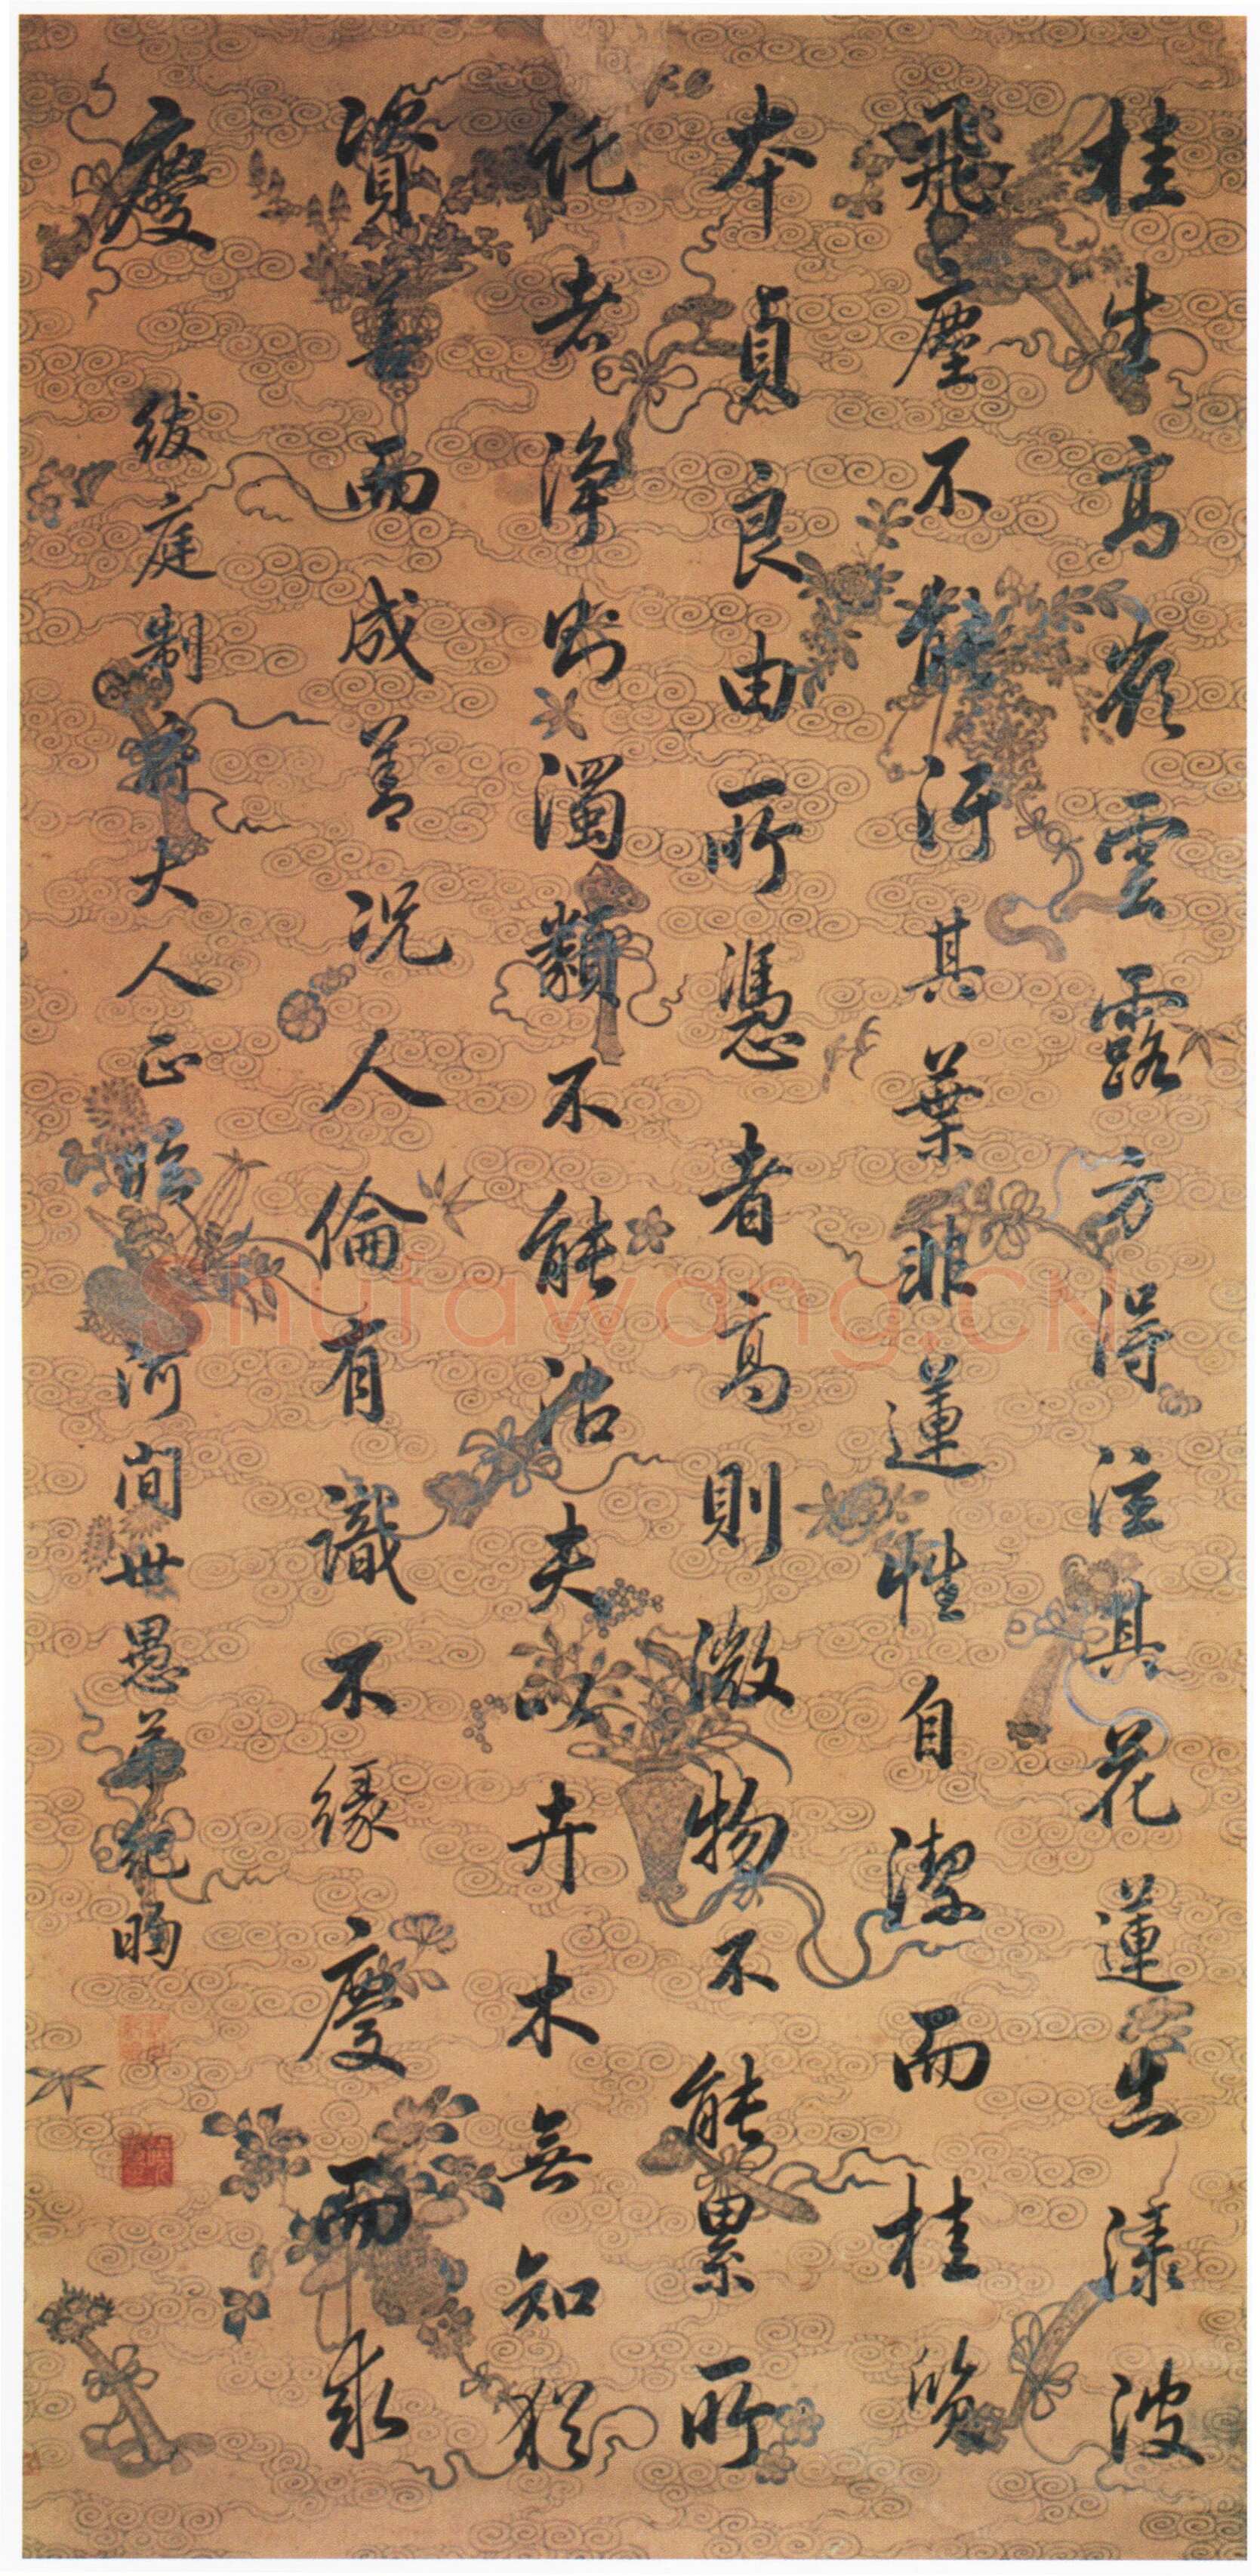 桂生高嶺雲露方得泫其花蓮出淥波
飛塵不能汙其葉非蓮性自潔而桂質
本貞良由所憑者高則微物不能累所
託者淨則濁類不能沾夫以卉木無知猶
資善而成善況人倫有識不緣慶而求
慶
紱庭制大人正腕 河間世愚弟紀昀
Shufawang.CN